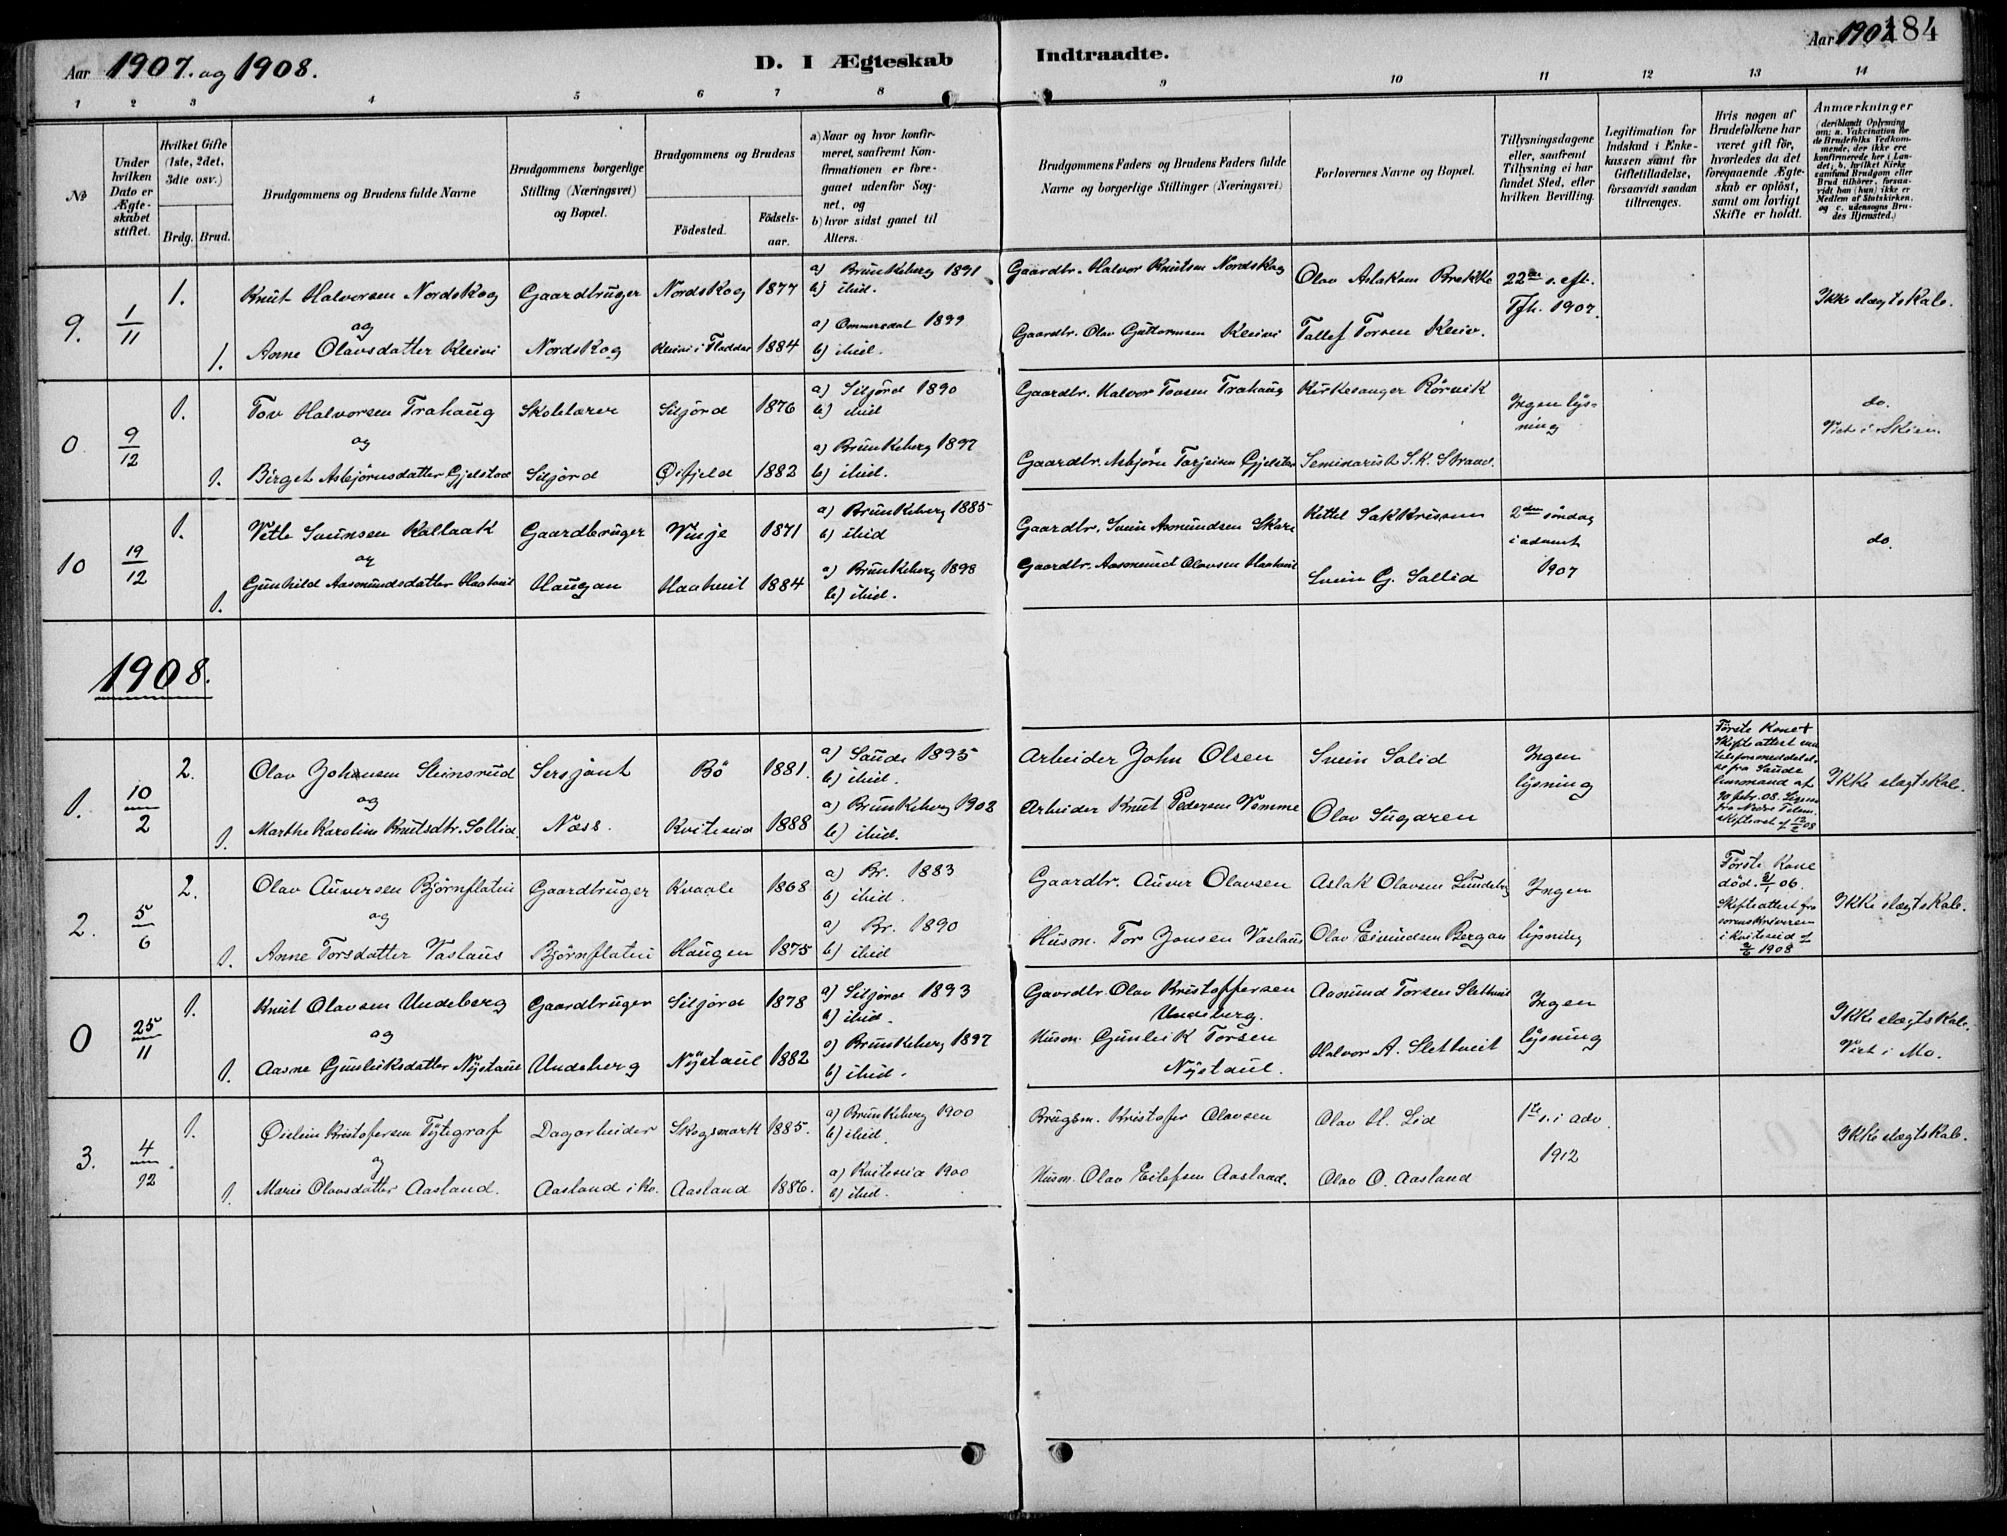 Aar 1907. og 1908.
D. I Ægteskab
Indtraadte.
Aar 190
184
1 2 3 4 5 6 7 8 9 10 11 12 13 14
No
Under hvilken Dato er Ægteskabet stiftet.
Hvilket Gifte (1ste, 2det, 3die osv.)
Brdg. Brud.
Brudgommens og Brudens fulde Navne
Brudgommens borgerlige Stilling (Næringsvei) og Bopæl.
Brudgommens og Brudens
Födested. Födsels-aar.
a) Naar og hvor konfir-
meret, saafremt Kon-
firmationen er fore-
gaaet udenfor Sog-
net, og
b) hvor sidst gaaet til
Alters.
Brudgommens Faders og Brudens Faders fulde
Navne og borgerlige Stillinger (Næringsvei)
Forlovernes Navne og Bopæl.
Tillysningsdagene
eller, saafremt
Tillysning ei har
fundet Sted, efter
hvilken Bevilling.
Legitimation for
Indskud i Enke-
kassen samt for
Giftetilladelse,
forsaavidt saadan
tiltrænges.
Hvis nogen af
Brudefolkene har
været gift för,
hvorledes da det
foregaaende Ægte-
skab er oplöst,
samt om lovligt
Skifte er holdt.
Anmærkninger
(deriblandt Oplysning
om: a. Vakcination for
de Brudefolks Vedkom-
mende, der ikke ere
konfirmerede her i Lan-
det; b. hvilket Kirke
samfund Brudgom eller
Brud tilhörer, forsaa-
vidt han (hun) ikke er
Medlem af Statskirken,
og c. udensogns Bru-
des Hjemsted.)
9. 1/11 1. Knut Halvorsen Nordskog Gaardbruger Nordskog 1877 a) Brunkeberg 1891 b) ibid. Gaardbr. Halvor Knutsen Nordskog Olav Aslaksen Brekke 22de s. eft. Tfh. 1907. Ikke slægtskab.
og
1. Anne Olavsdatter Kleivi Nordskog Kleivi i Fladdal 1884 a) Ommersdal 1899 b) ibid. Gaardbr. Olav Guttormsen Kleivi Tallef Torsen Kleiv.
0 9/12 1. Tov Halvorsen Trahaug Skolelærer Siljord 1876 a) Siljord 1890 b) ibid Gaardbr. Halvor Tovsen Trahaug Kirkesanger Rörvik Ingen lysning do. Viet i Skien.
og
1. Birget Asbjörnsdatter Gjelstad Siljord Öifjeld 1882 a) Brunkeberg 1897 b) ibid. Gaardbr. Asbjörn Tarjeisen Gjelstad Seminarist S. K. Straand.
10 19/12 1. Vetle Sveinsen Kallaak Gaardbruger Vinje 1871 a) Brunkeberg 1885 b) ibid Gaardbr. Svein Asmundsen Skare Kittel Sakkrissen 2den söndag i advent 1907 do.
og
1. Gunhild Aasmundsdatter Haatveit Haugan Haatveit 1884 a) Brunkeberg 1898 b) ibid. Gaardbr. Aasmund Olavsen Haatveit Svein G. Sollid
1908.
1. 10/2 2. Olav Johnsen Steinsrud Sersjant Bö 1881. a) Saude 1895 b) ibid. Arbeider John Olsen Svein Solid Ingen lysning Förste Kone + Skifteattest Ikke slægtskab.
og
1. Marthe Karoline Knutsdtr. Sollid. Næss. Kviteseid 1888 a) Brunkeberg 1902 b) ibid. Arbeider Knut Pedersen Vemme Olav Sugaren
2. 5/6 2. Olav Auversen Björnflatin Gaardbruger Kvaale 1868 a) Br. 1883 b) ibid. Gaardbr. Auver Olavsen Aslak Olavsen Lundeberg Ingen lysning Förste Kone död. 2/1 06. Skifteattest fra sorenskriveren i Kviteseid af 2/6 1908 Ikke slægtskab.
og
1. Anne Torsdatter Vaslaus Björnflatin Haugen 1875 a) Br. 1890 b) ibid Husm. Tor Jonsen Vaslaus Olav Eivindsen Bergan
0 25/11 1. Knut Olavsen Undeberg Gaardbruger Siljord 1878 a) Siljord 1893 b) ibid. Gaardbr. Olav Kristoffersen Undeberg. Aasmund Torsen Slettveit Ingen lysning Ikke slægtskab. Viet i Mo.
og
1. Aasne Gunleiksdatter Nystaul Undeberg Nystaul 1882 a) Brunkeberg 1897 b) ibid. Husm. Gunleik Torsen Nystaul. Halvor A. Slettveit
3. 4/12. 1. Öistein Kristofersen Tytegraf Dagarbeider Skogsmark 1885. a) Brunkeberg 1900 b) ibid. Brugsm. Kristofer Olavsen Olav H. Lid 1ste s. i adv. 1912 Ikke slægtskab.
og
1. Marie Olavsdatter Aasland. Aasland i Kv. Aasland 1886. a) Kviteseid 1900 b) ibid. Husm. Olav Eilefsen Aasland. Olav O. Aasland